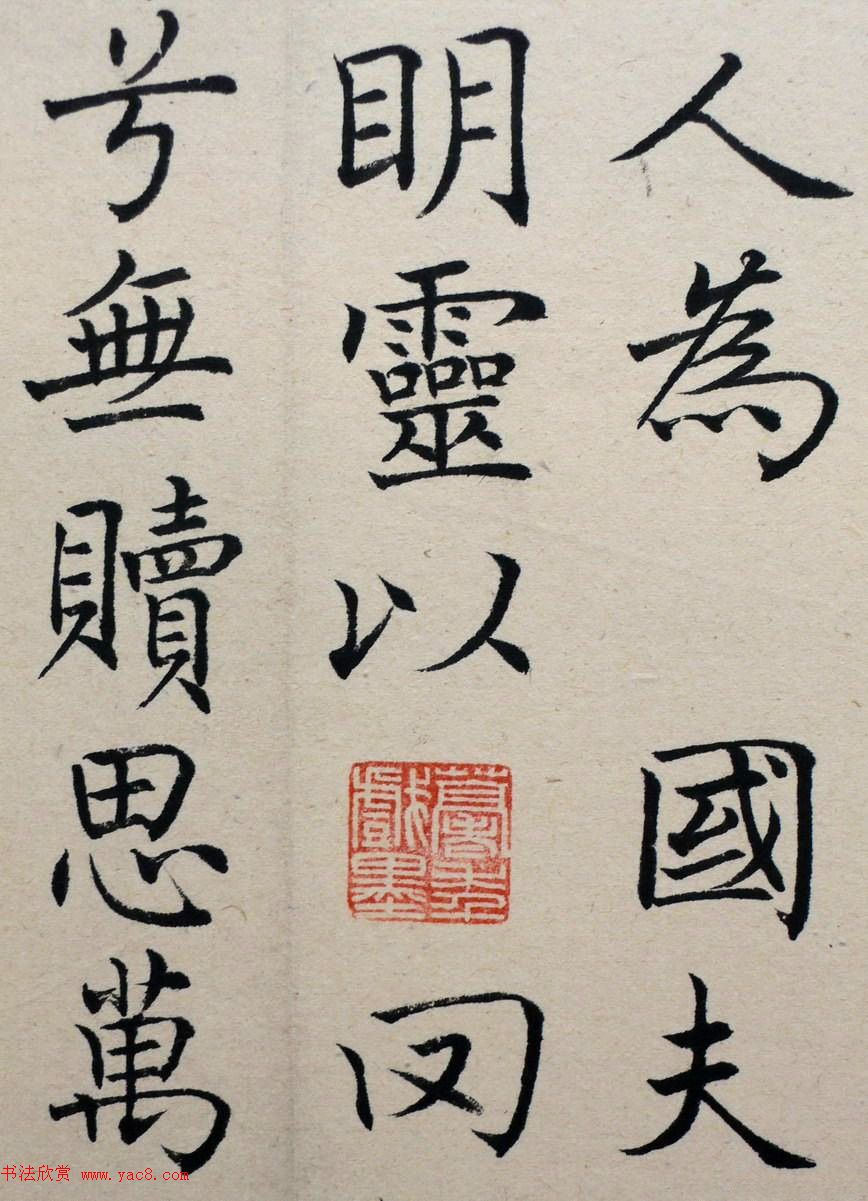 人為國夫
眀靈以
兮無贖思萬
书法欣赏 www.yac8.com